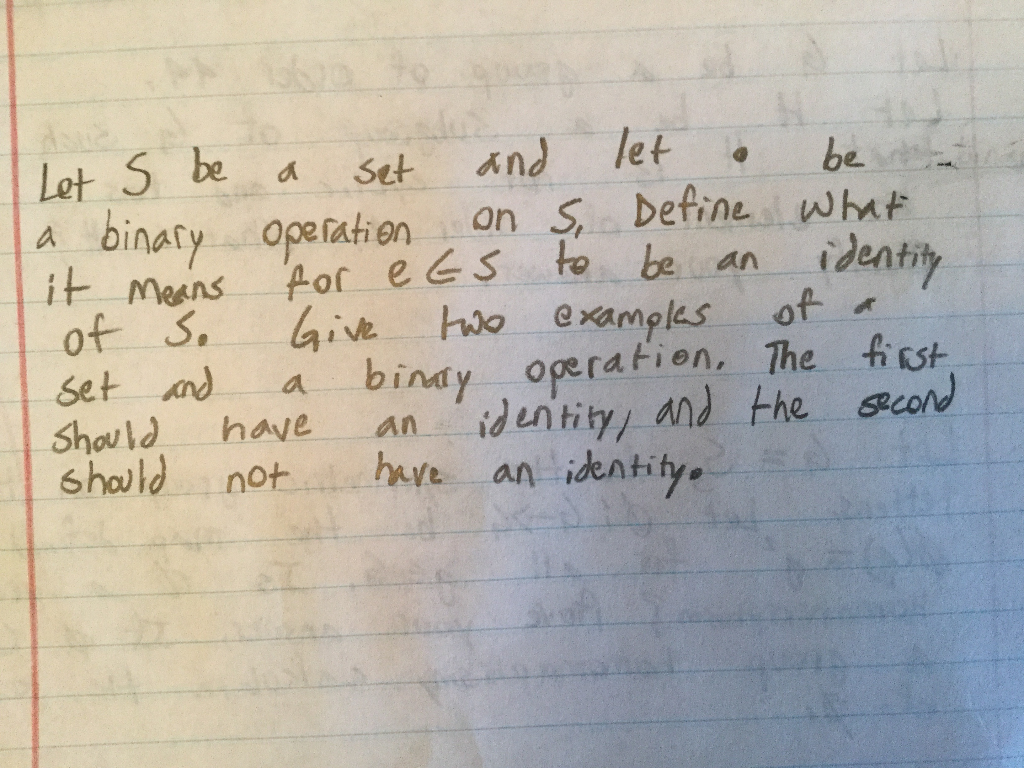 Let S be a set and let • be
a binary operation on S. Define what
it means for e ∈ S to be an identity
of S. Give two examples of a
set and a binary operation. The first
should have an identity, and the second
should not have an identity.